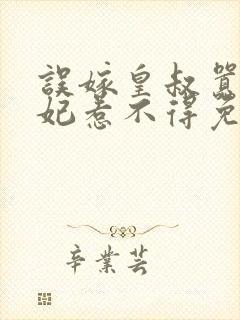 誤嫁皇叔囂
妃惹不得免
辛業芸